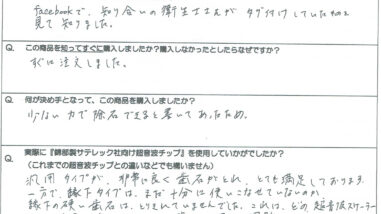 facebookで、知り合いの衛生士さんが タグ付けしていたのを
見て知りました。
Q. この商品を知ってすぐに購入しましたか？購入しなかったとしたらなぜですか？
すぐに注文しました。
Q. 何が決め手となって、この商品を購入しましたか？
少ない力で除石できると書いてあったため。
Q. 実際に『錦部製サテレック社向け超音波チップ』を使用していかがでしたか？
（これまでの超音波チップとの違いなどでも構いません）
汎用タイプが、非常に良く歯石がとれ、とても満足しております。
一方で、縁下タイプは、まだ十分に使いこなせていないのか
縁下の硬い歯石は、とりきれていませんでした。これは、どの超音波スケーラー